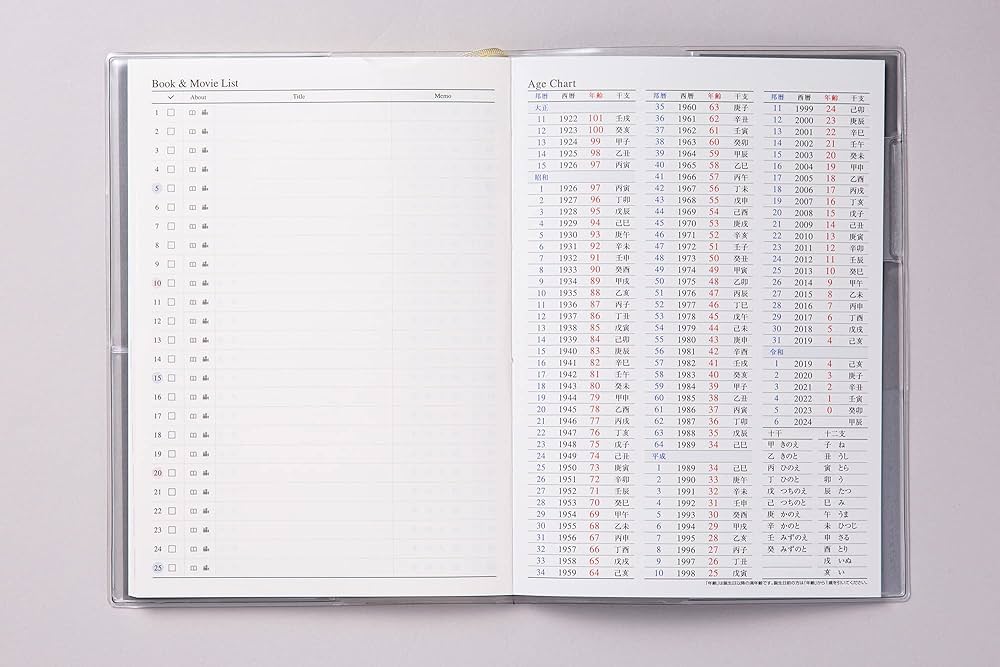 Book & Movie List
✓ About Title Memo
1
2
3
4
5
6
7
8
9
10
11
12
13
14
15
16
17
18
19
20
21
22
23
24
25
Age Chart
邦暦 西暦 年齢 干支
大正
11 1922 101 壬戌
12 1923 100 癸亥
13 1924 99 甲子
14 1925 98 乙丑
15 1926 97 丙寅
昭和
1 1926 97 丙寅
2 1927 96 丁卯
3 1928 95 戊辰
4 1929 94 己巳
5 1930 93 庚午
6 1931 92 辛未
7 1932 91 壬申
8 1933 90 癸酉
9 1934 89 甲戌
10 1935 88 乙亥
11 1936 87 丙子
12 1937 86 丁丑
13 1938 85 戊寅
14 1939 84 己卯
15 1940 83 庚辰
16 1941 82 辛巳
17 1942 81 壬午
18 1943 80 癸未
19 1944 79 甲申
20 1945 78 乙酉
21 1946 77 丙戌
22 1947 76 丁亥
23 1948 75 戊子
24 1949 74 己丑
25 1950 73 庚寅
26 1951 72 辛卯
27 1952 71 壬辰
28 1953 70 癸巳
29 1954 69 甲午
30 1955 68 乙未
31 1956 67 丙申
32 1957 66 丁酉
33 1958 65 戊戌
34 1959 64 己亥
邦暦 西暦 年齢 干支
35 1960 63 庚子
36 1961 62 辛丑
37 1962 61 壬寅
38 1963 60 癸卯
39 1964 59 甲辰
40 1965 58 乙巳
41 1966 57 丙午
42 1967 56 丁未
43 1968 55 戊申
44 1969 54 己酉
45 1970 53 庚戌
46 1971 52 辛亥
47 1972 51 壬子
48 1973 50 癸丑
49 1974 49 甲寅
50 1975 48 乙卯
51 1976 47 丙辰
52 1977 46 丁巳
53 1978 45 戊午
54 1979 44 己未
55 1980 43 庚申
56 1981 42 辛酉
57 1982 41 壬戌
58 1983 40 癸亥
59 1984 39 甲子
60 1985 38 乙丑
61 1986 37 丙寅
62 1987 36 丁卯
63 1988 35 戊辰
64 1989 34 己巳
平成
1 1989 34 己巳
2 1990 33 庚午
3 1991 32 辛未
4 1992 31 壬申
5 1993 30 癸酉
6 1994 29 甲戌
7 1995 28 乙亥
8 1996 27 丙子
9 1997 26 丁丑
10 1998 25 戊寅
邦暦 西暦 年齢 干支
11 1999 24 己卯
12 2000 23 庚辰
13 2001 22 辛巳
14 2002 21 壬午
15 2003 20 癸未
16 2004 19 甲申
17 2005 18 乙酉
18 2006 17 丙戌
19 2007 16 丁亥
20 2008 15 戊子
21 2009 14 己丑
22 2010 13 庚寅
23 2011 12 辛卯
24 2012 11 壬辰
25 2013 10 癸巳
26 2014 9 甲午
27 2015 8 乙未
28 2016 7 丙申
29 2017 6 丁酉
30 2018 5 戊戌
31 2019 4 己亥
令和
1 2019 4 己亥
2 2020 3 庚子
3 2021 2 辛丑
4 2022 1 壬寅
5 2023 0 癸卯
6 2024 甲辰
十干 十二支
甲 きのえ 子 ね
乙 きのと 丑 うし
丙 ひのえ 寅 とら
丁 ひのと 卯 う
戊 つちのえ 辰 たつ
己 つちのと 巳 み
庚 かのえ 午 うま
辛 かのと 未 ひつじ
壬 みずのえ 申 さる
癸 みずのと 酉 とり
戌 いぬ
亥 い
「年齢」は誕生日以降の満年齢です。誕生日前の方は「年齢」から1歳を引いてください。